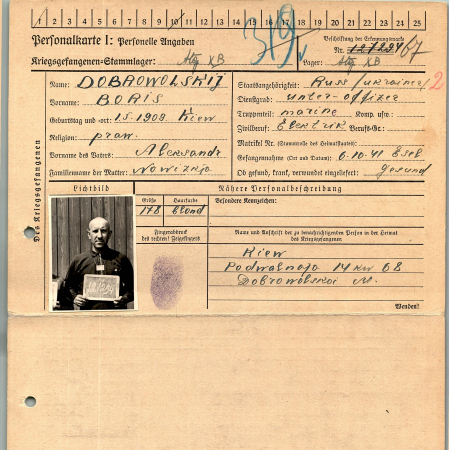 1 2 3 4 5 6 7 8 9 10 11 12 13 14 15 16 17 18 19 20 21 22 23 24 25
Personalkarte I: Personelle Angaben
Beschriftung der Erkennungsmarke
Nr.
Kriegsgefangenen-Stammlager: XB
Lager: XB
Des Kriegsgefangenen
Name: DOBROWOLSKIJ
Vorname: BORIS
Geburtstag und -ort: 1.5.1908. Kiew
Religion: praw.
Vorname des Vaters: Aleksandr
Familienname der Mutter: Nowizkja
Staatsangehörigkeit: Russ/ukrainer/2
Dienstgrad: unter-offizer
Truppenteil: marine Komp. usw.:
Zivilberuf: Elektrik Berufs-Gr.:
Matrikel Nr. (Stammrolle des Heimatstaates):
Gefangennahme (Ort und Datum): 6-10-41 Esel
Ob gesund, krank, verwundet eingeliefert: gesund
Lichtbild
Nähere Personalbeschreibung
Größe Haarfarbe
178 blond
Besondere Kennzeichen:
Fingerabdruck
des rechten! Zeigefingers
Name und Anschrift der zu benachrichtigenden Person in der Heimat
des Kriegsgefangenen
Kiew
Podwalnaja 14 kw 68
Dobrowolskai M.
Wenden!